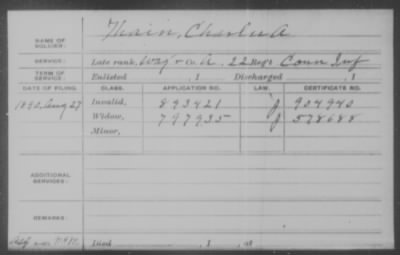 NAME OF SOLDIER: Main, Charles A
SERVICE: Late rank, Co. A, 22 Reg't Conn Inf
TERM OF SERVICE: Enlisted , 1 Discharged , 1
DATE OF FILING. CLASS. APPLICATION NO. LAW. CERTIFICATE NO.
1890, Aug 27 Invalid, 893421 J 904940
Widow, 797935 J 578688
Minor,
ADDITIONAL SERVICES:
REMARKS:
Died , 1 , at